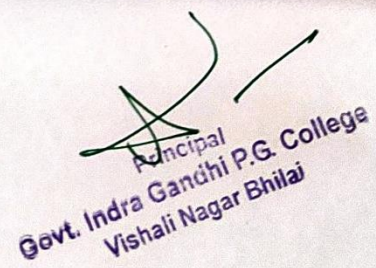 Principal
Govt. Indra Gandhi P.G. College
Vishali Nagar Bhilai